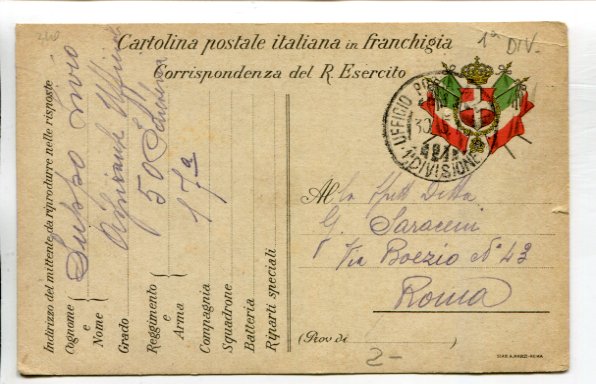 Cartolina postale italiana in franchigia
Corrispondenza del R. Esercito
1ª DIV.
UFFICIO
1ª DIVISIONE
Indirizzo del mittente da riprodurre nelle risposte
Cognome e Nome
Livio
Grado
Aspirante
Reggimento e Arma
50
Compagnia
17ª
Squadrone
Batteria
Riparti speciali
Alla Spett Ditta
G. Saraceni
Via Boezio Nº 43
Roma
(Prov di
2-